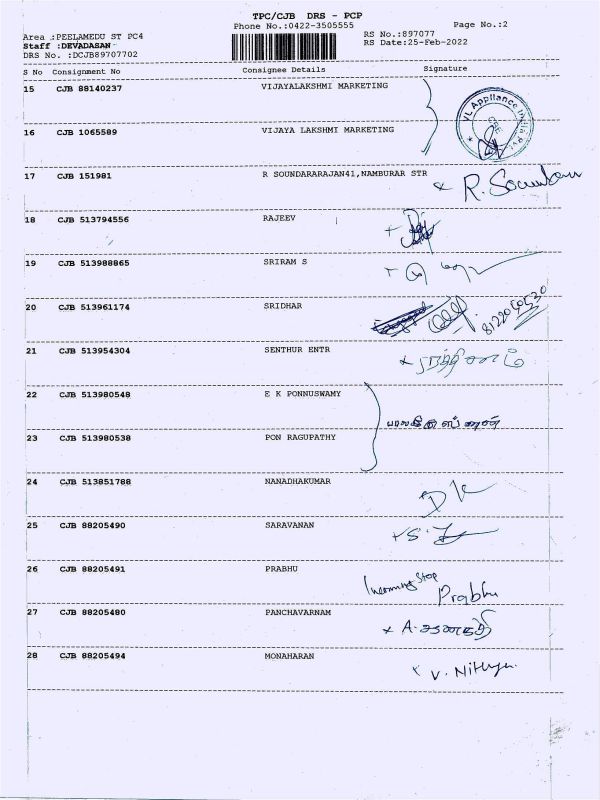 TPC/CJB DRS - PCP
Phone No.:0422-3505555
Page No.:2
Area :PEELAMEDU ST PC4
Staff :DEVADASAN
DRS No. :DCJB89707702
RS No.:897077
RS Date:25-Feb-2022
S No Consignment No Consignee Details Signature
15 CJB 88140237 VIJAYALAKSHMI MARKETING
VL Appliance India Pvt.
CBE
16 CJB 1065589 VIJAYA LAKSHMI MARKETING
17 CJB 151981 R SOUNDARARAJAN41,NAMBURAR STR
18 CJB 513794556 RAJEEV
19 CJB 513988865 SRIRAM S
20 CJB 513961174 SRIDHAR
21 CJB 513954304 SENTHUR ENTR
22 CJB 513980548 E K PONNUSWAMY
23 CJB 513980538 PON RAGUPATHY
24 CJB 513851788 NANADHAKUMAR
25 CJB 88205490 SARAVANAN
26 CJB 88205491 PRABHU Prabhu
27 CJB 88205480 PANCHAVARNAM
28 CJB 88205494 MONAHARAN V. Nithya